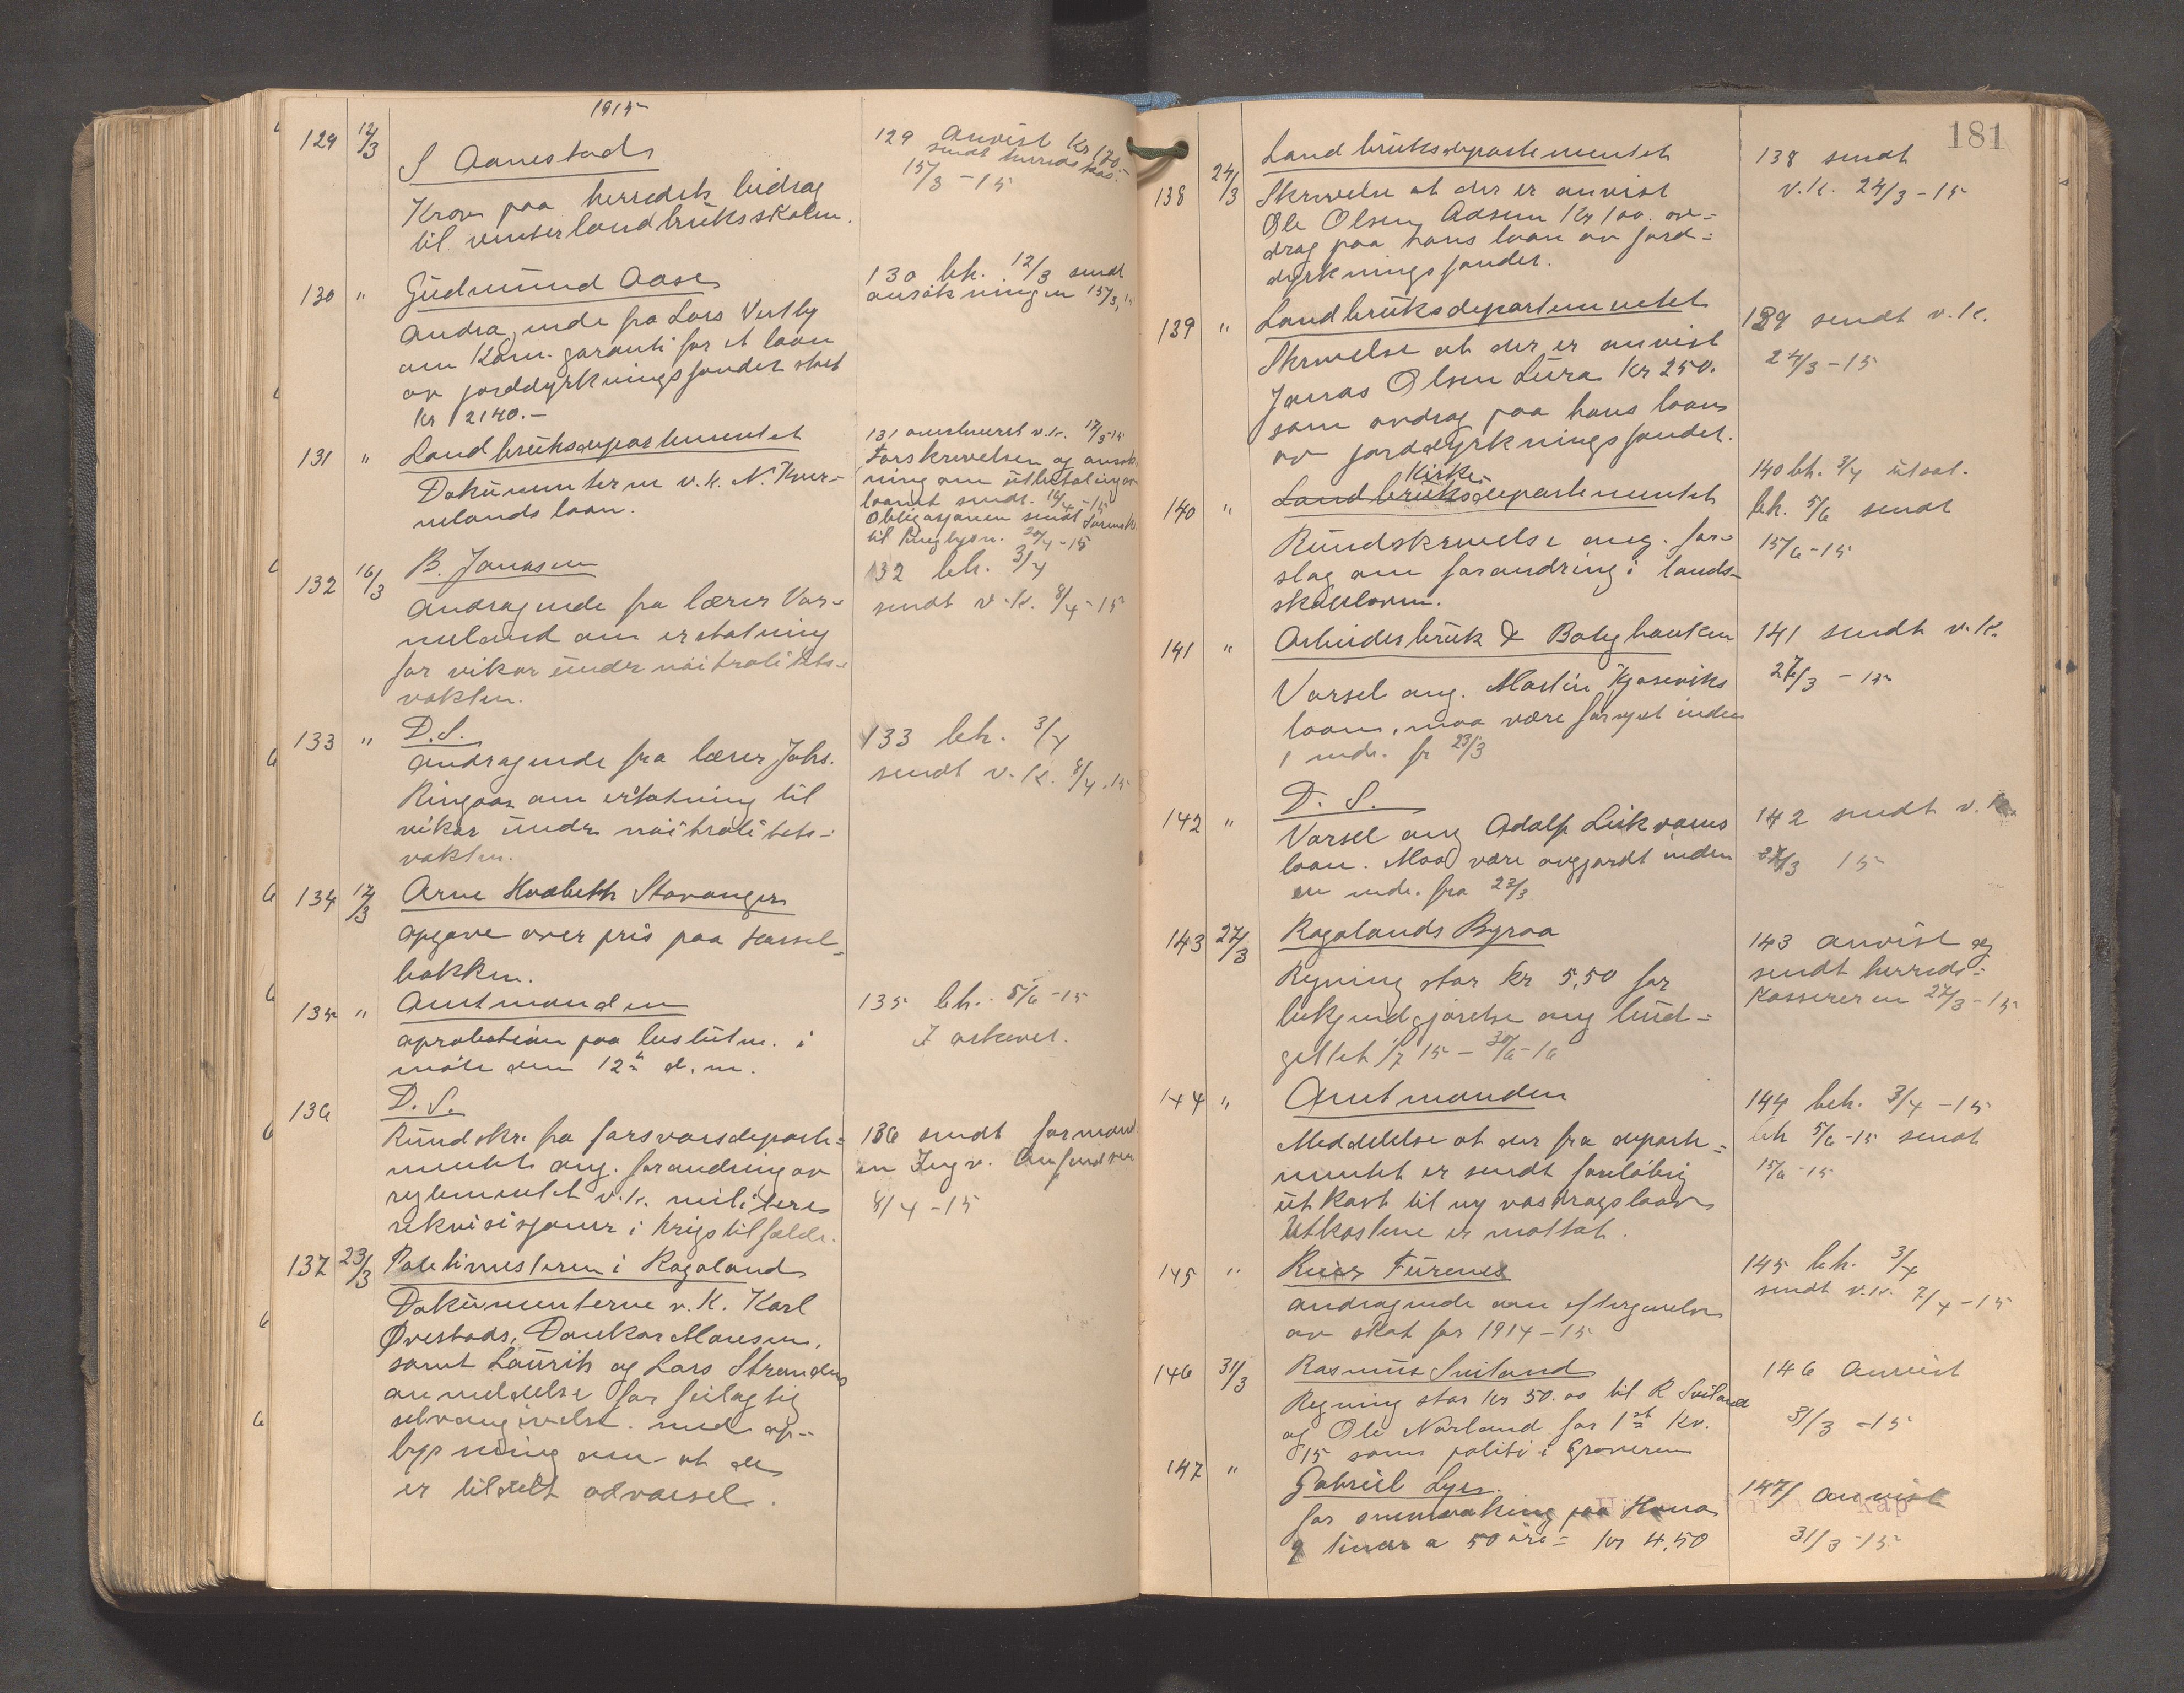 1915
129 12/3 S Aanestad
Krav paa herredets bidrag
til vinterlandbruksskolen.
129 anvist kr 170.-
sendt herredskas.
15/3 - 15
130 " Gudmund Aase
Andragende fra Lars Vestly
om Kom. garanti for et laan
av jorddyrkningsfondet stort
kr 2140.-
130 beh. 12/3 sendt
ansökningen 15/3, 15
131 " Landbruksdepartementet
Dokumenterne v.k. N. Kver-
nelands laan.
131 v.k. 17/3-15
Forskrivelsen og ansök-
ning om utbetaling av
laanet sendt. 16/4-15
Obligasjonen sendt
til tinglysn. 20/4-15
132 16/3 B. Jonasen
Andragende fra lærer Var-
neland om erstatning
for vikar under nöitralitets-
vakten.
132 beh. 3/4
sendt v.k. 8/4-15
133 " D.S.
Andragende fra lærer Johs.
Ringaas om erstatning til
vikar under nöitralitets-
vakten.
133 beh. 3/4
sendt v.k. 8/4.15
134 17/3 Arne Hvalbeth Stavanger
opgave over pris paa Hassel-
bakken.
135 " Amtmanden
aprobation paa beslutn. i
möte den 12te d.m.
135 beh. 5/6-15
I arkivet.
136 D.S.
Rundskr. fra forsvarsdeparte-
mentet ang. forandring av
reglementet v.k. militære
rekvisisjoner i krigstilfælde.
136 sendt formand
en Ingv.
8/4-15
137 23/3 Politimesteren i Rogaland
Dokumenterne v.k. Karl
Øvestads, Dankar Maresen,
samt Laurits og Lars Strandes
anmeldelse for feilagtig
selvangivelse. med op-
lysning om at de
er tildelt advarsel.
181
138 24/3 Landbruksdepartementet
Skrivelse at der er anvist
Ole Olsen Adsen Kr 100. av-
drag paa hans laan av jord-
dyrkningsfondet.
138 sendt
v.k. 24/3-15
139 " Landbruksdepartementet
Skrivelse at der er anvist
Jonas Olsen Lura kr 250.
som avdrag paa hans laan
av jorddyrkningsfondet.
139 sendt v.k.
24/3-15
Kirke
140 " Landbruksdepartementet
Rundskrivelse ang. for-
slag om forandring i lands-
skoleloven.
140 beh. 3/4 utsat.
beh. 5/6 sendt
15/6-15
141 " Arbeiderbruk & Boligbanken
Varsel ang. Martin Kjoseviks
laan, maa være fornyet inden
1 mdr. fr 23/3
141 sendt v.k.
27/3 - 15
142 " D.S.
Varsel ang Adolf Leikvams
laan. Maa være avgjordt inden
en mdr. fra 23/3
142 sendt v.k.
27/3 15
143 27/3 Rogalands Byraa
Regning stor kr 5,50 for
bekjendtgjörelse ang bud-
gettet 1/7 15 - 30/6-16
143 anvist og
sendt herreds-
kassereren 27/3-15
144 " Amtmanden
Meddelelse at der fra departe-
mentet er sendt foreløbig
utkast til ny vasdragslaav
Utkastene er mottat.
144 beh. 3/4-15
beh 5/6-15 sendt
15/6-15
145 " Furenes
andragende om eftergivelse
av skat for 1914-15
145 beh. 3/4
sendt v.k. 7/4-15
146 31/3 Rasmus Sviland
Regning stor kr 50.00 til R Sviland
og Ole Norland for 1ste Kv.
15 som politi i Graveren
146 anvist
31/3 -15
147 " Gabriel Lyse
for snemaaking paa Hana
9 timer a 50 öre = kr 4,50
147 anvist
31/3-15